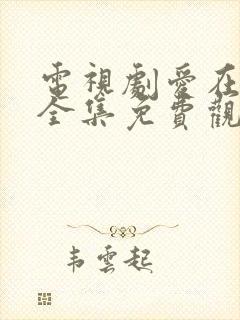 電視劇愛在
全集免費觀
韦雲起